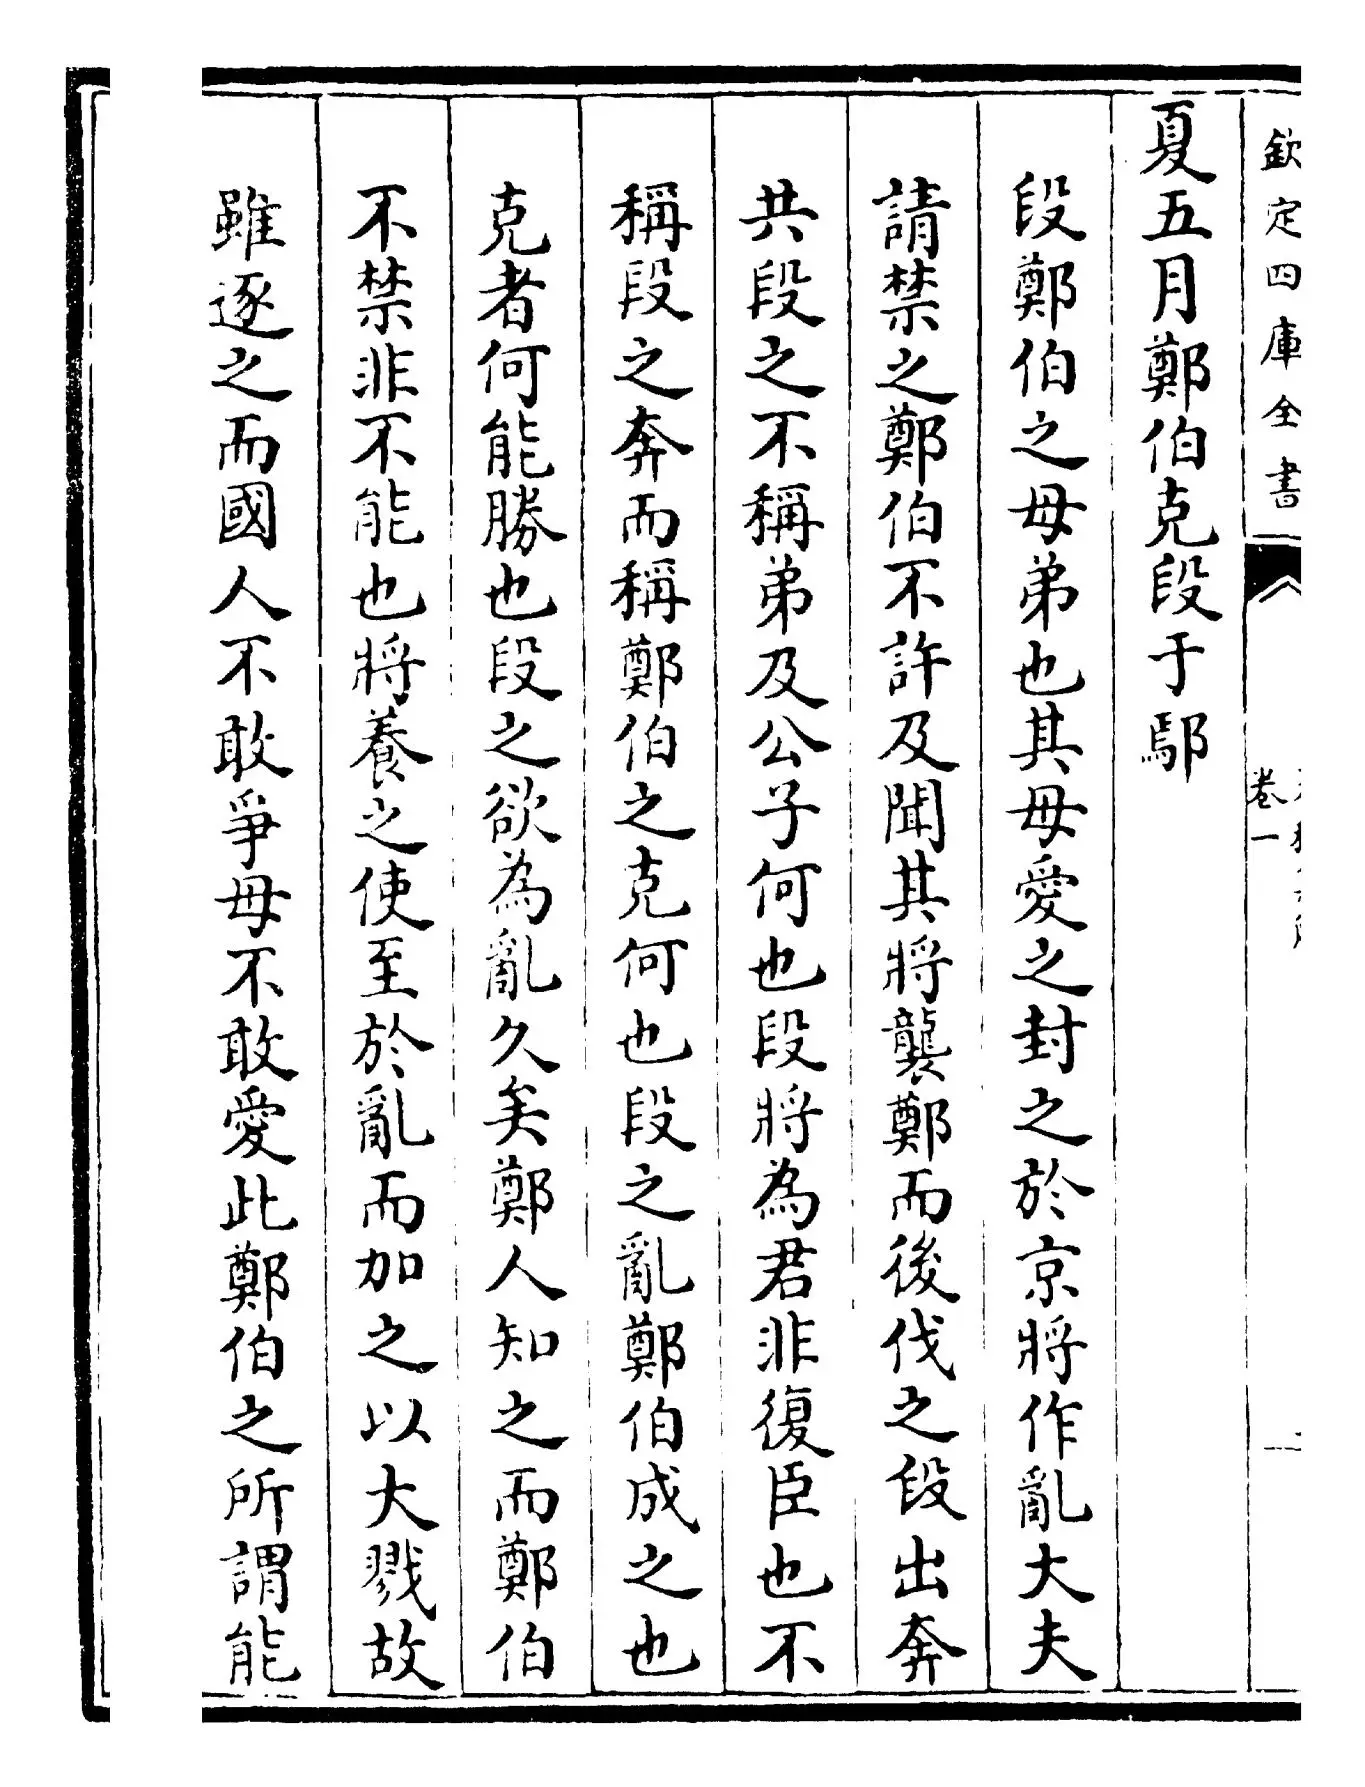 欽定四庫全書
卷一
夏五月鄭伯克段于鄢
段鄭伯之母弟也其母愛之封之於京將作亂大夫
請禁之鄭伯不許及聞其將襲鄭而後伐之段出奔
共段之不稱弟及公子何也段將為君非復臣也不
稱段之奔而稱鄭伯之克何也段之亂鄭伯成之也
克者何能勝也段之欲為亂久矣鄭人知之而鄭伯
不禁非不能也將養之使至於亂而加之以大戮故
雖逐之而國人不敢爭母不敢愛此鄭伯之所謂能